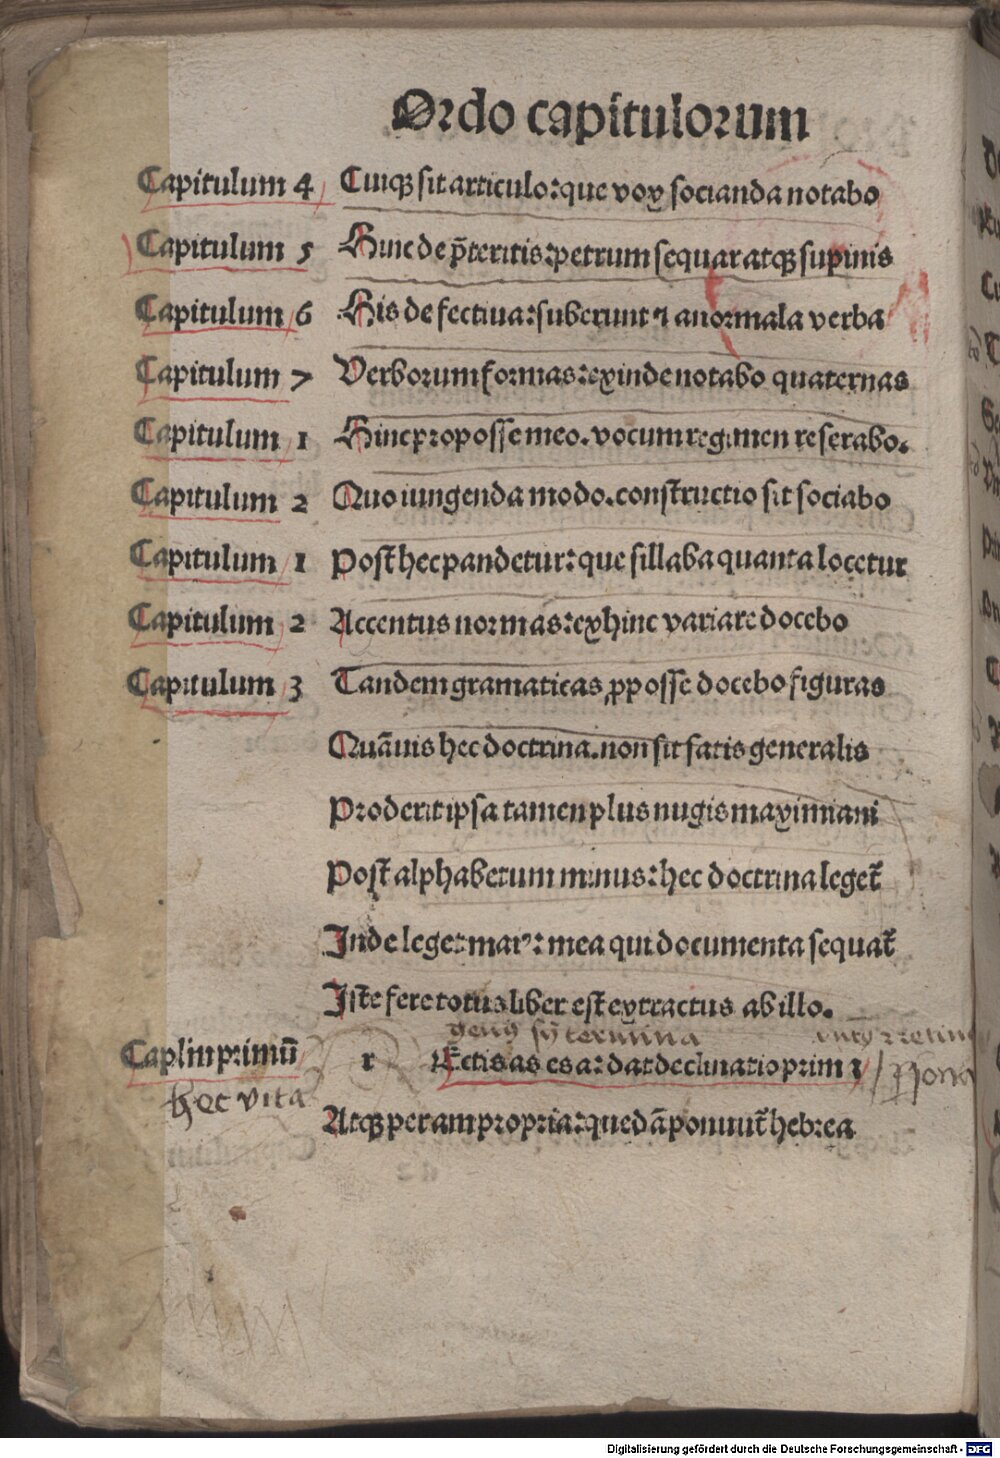 Ordo capitulorum
Capitulum 4 Cuiqꝫ sit articulo:que vox socianda notabo
Capitulum 5 Hinc de p̄teritis:petrum sequar atqꝫ supinis
Capitulum 6 His defectiua:suberunt ⁊ anormala verba
Capitulum 7 Verborum formas:exinde notabo quaternas
Capitulum 1 Hinc pro posse meo.vocum regimen reserabo.
Capitulum 2 Quo iungenda modo.constructio sit sociabo
Capitulum 1 Post hec pandetur:que sillaba quanta locetur
Capitulum 2 Accentus normas:exhinc variare docebo
Capitulum 3 Tandem gramaticas ꝓ posse docebo figuras
Quāuis hec doctrina.non sit satis generalis
Proderit ipsa tamen plus nugis maximiani
Post alphabetum minus:hec doctrina leget̄
Inde leget maiꝰ:mea qui documenta sequat̄
Iste fere totus liber est extractus ab illo.
genꝰ termina
Caplm primū r Ectis as es a:dat declinatio prima
hec vita
Atqꝫ per am propria:quedā ponunt̄ hebrea
Digitalisierung gefördert durch die Deutsche Forschungsgemeinschaft - DFG